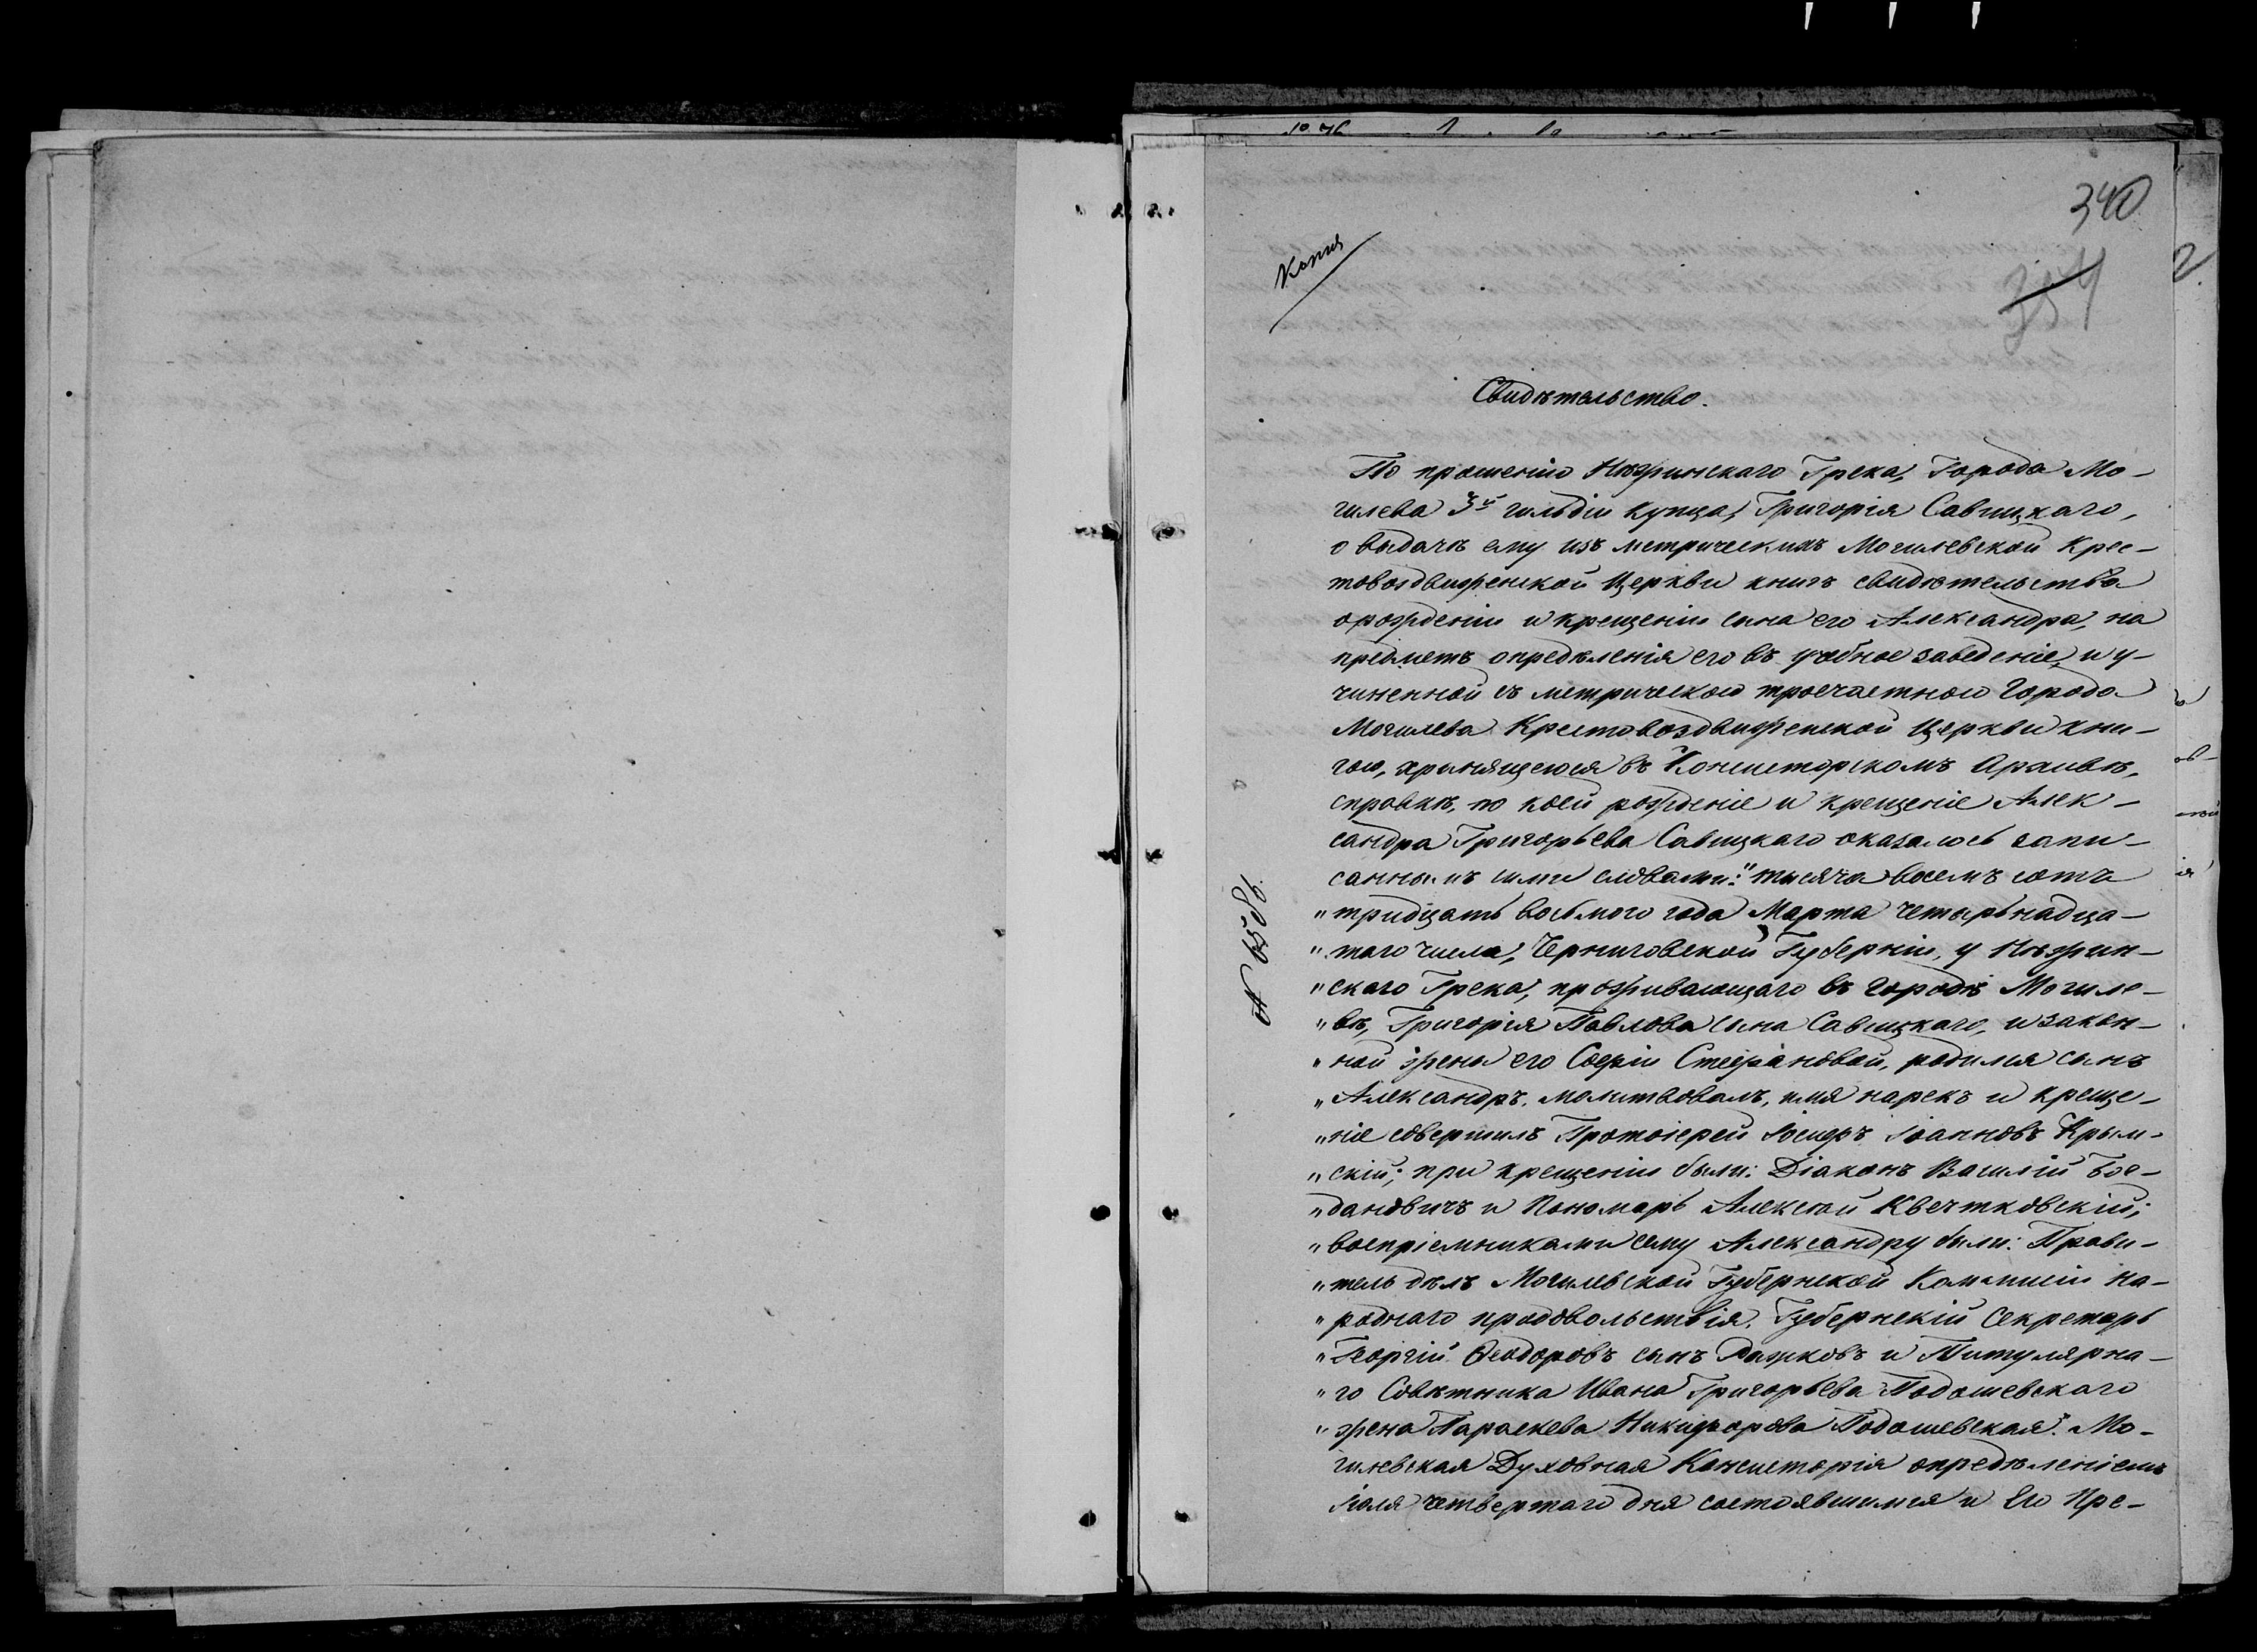 340
Копия
354
Свидѣтельство.
По прошенію Нѣжинскаго Грека, Города Мо-
гилева 3й гильдіи купца, Григорія Савицкаго,
о выдачѣ ему изъ метрическихъ Могилевской Крес-
товоздвиженской Церкви книгъ свидѣтельства
о рожденіи и крещеніи сына его Александра, на
предметъ опредѣленія его въ учебное заведеніе, и у-
чиненной съ метрическою троечастною Города
Могилева Крестовоздвиженской Церкви кни-
гою, хранящеюся въ Консисторскомъ Архивѣ,
справкѣ, по коей рожденіе и крещеніе Алек-
сандра Григорьева Савицкаго оказалось запи-
саннымъ сими словами: "тысяча восемъ сотъ
"тридцать восьмого года Марта четырнадца-
"таго числа, Черниговской Губерніи, у Нѣжин-
"скаго Грека, проживающаго въ городѣ Могиле-
"вѣ, Григорія Павлова сына Савицкаго, и закон-
"ной жены его Софіи Стефановой, родился сынъ
"Александръ. молитвовалъ, имя нарекъ и креще-
"ніе совершилъ Протоіерей Іосифъ Іоанновъ Крым-
"скій; при крещеніи были: Діаконъ Василій Бог-
"дановичъ и Пономарь Алексѣй Квечтковскій;
"воспріемниками сему Александру были: Прави-
"тель дѣлъ Могилевской Губернской Коммисіи на-
"роднаго продовольствія, Губернскій Секретарь
"Георгій Ѳеодоровъ сынъ Ражковъ и Титулярна-
"го Совѣтника Ивана Григорьева Подошевскаго
"жена Параскева Никифорова Подошевская". Мо-
гилевская Духовная Консисторія опредѣленіемъ
Іюля четвертаго дня состоявшимся и Его Пре-